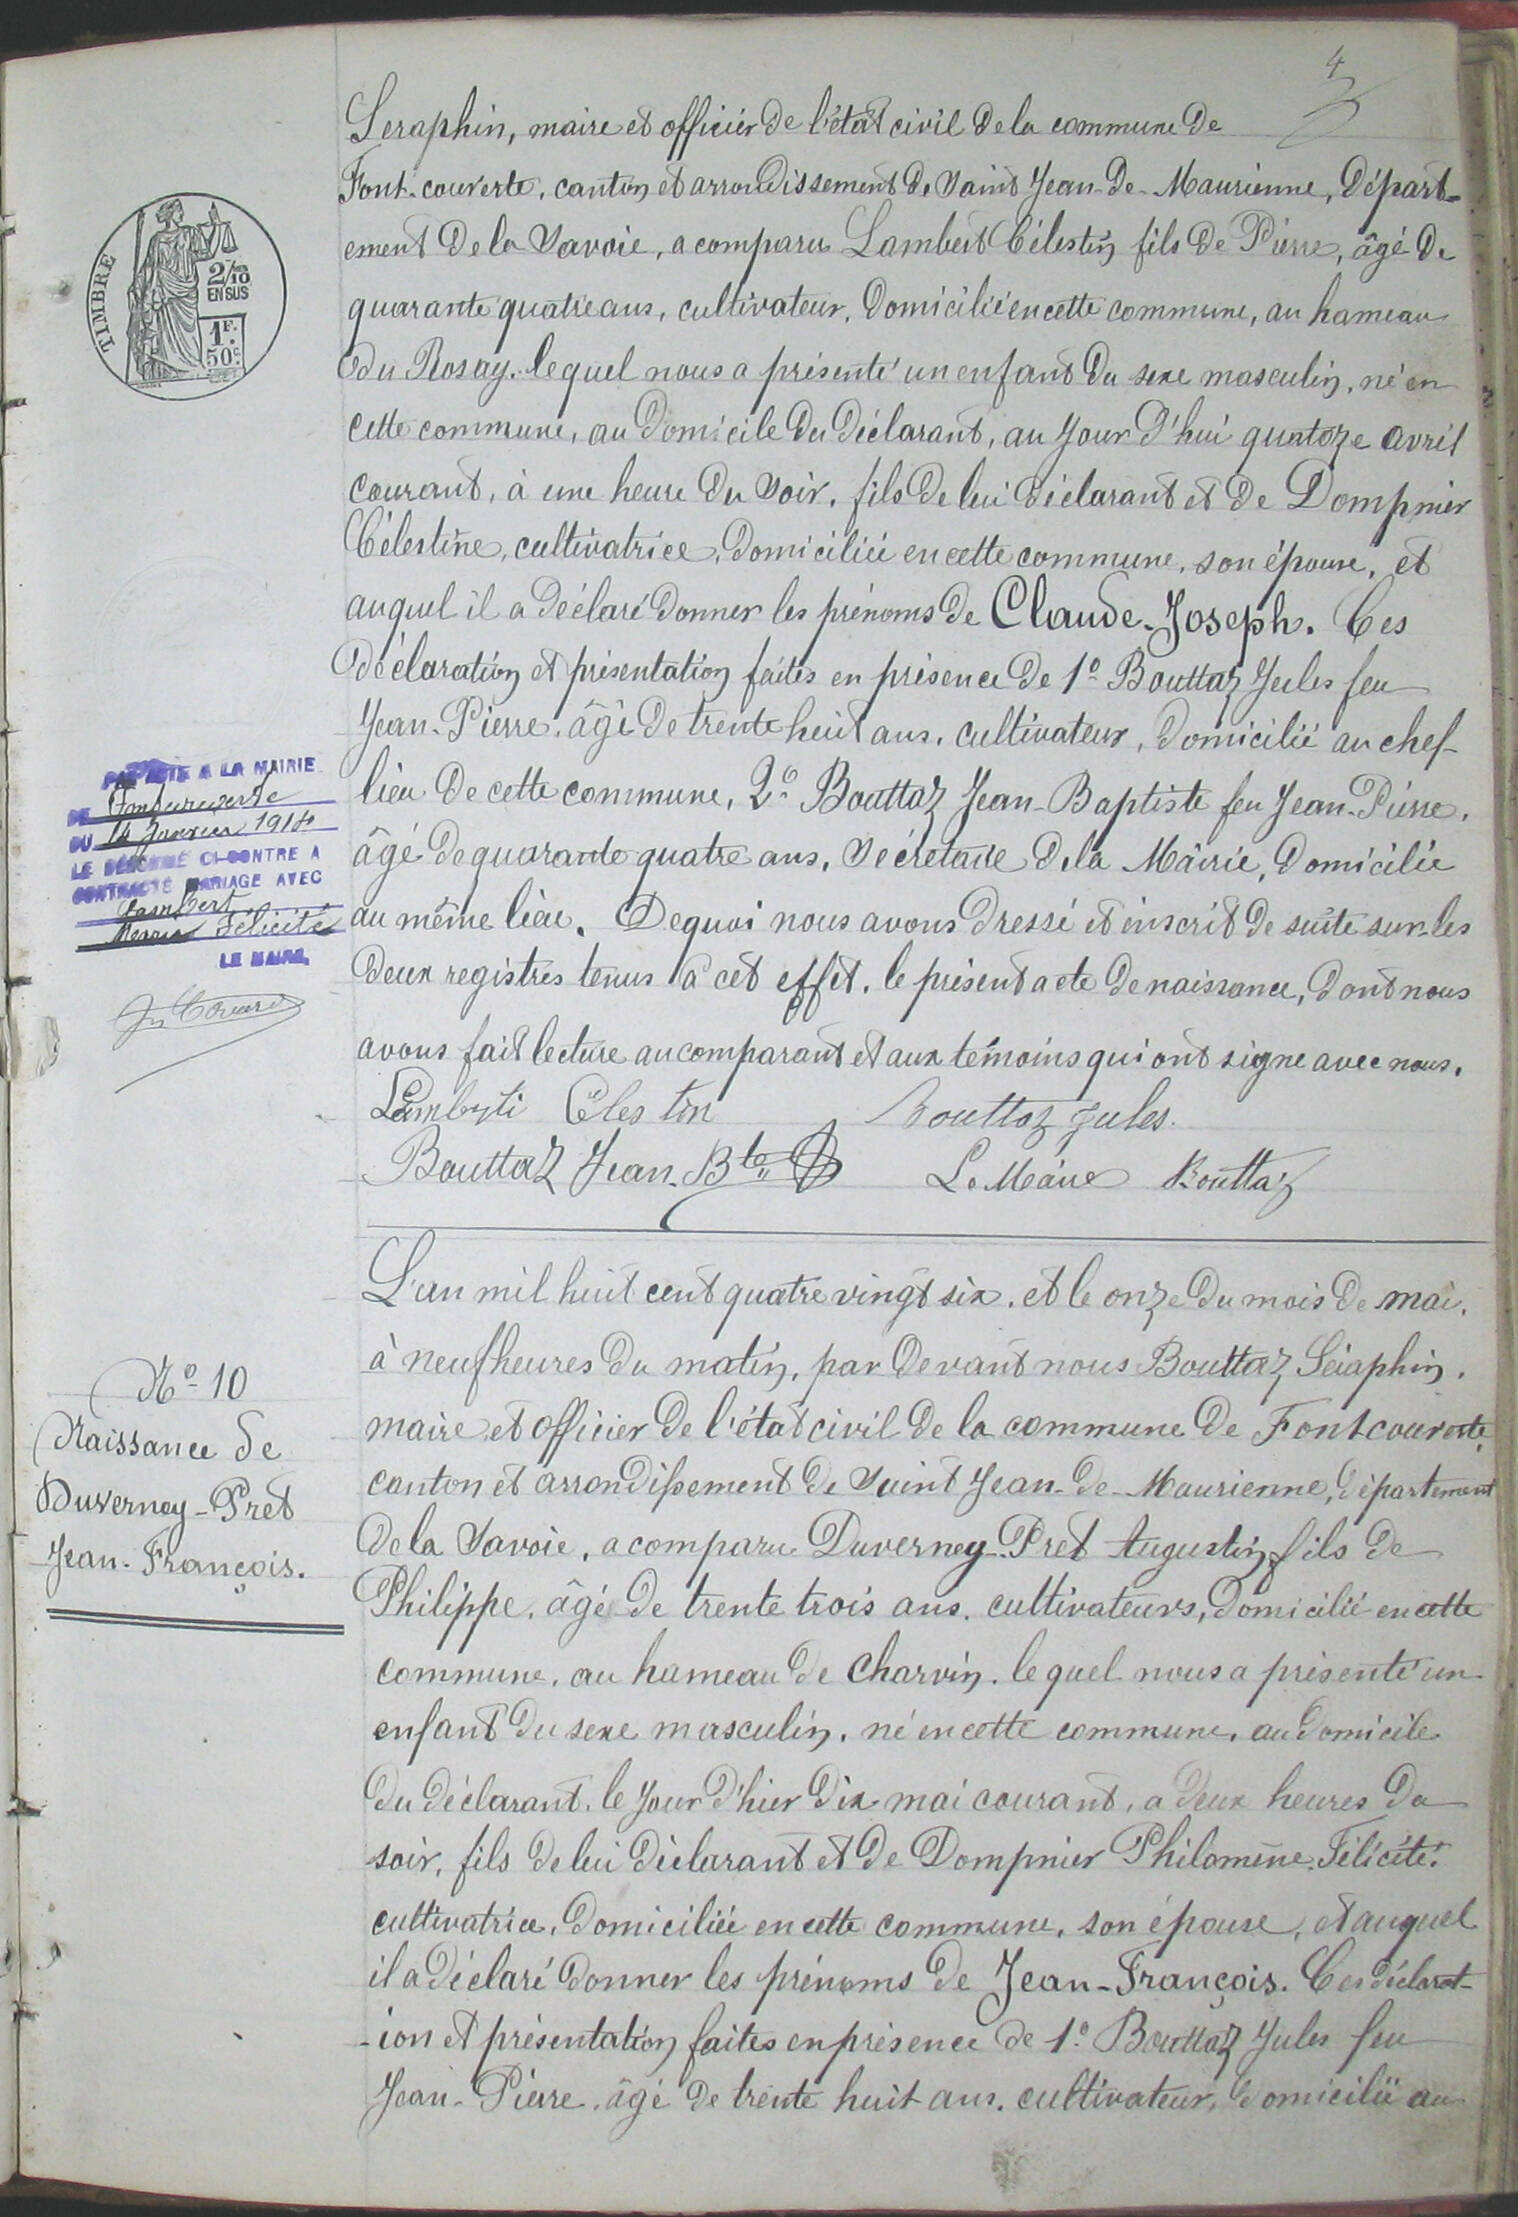 4
Seraphin, maire et officier de l'état civil de la commune de
Font-couverte, canton et arrondissement de Saint Jean-de-Maurienne, Départ-
ement de la Savoie, a comparu Lambert Célestin fils de Pierre, âgé de
quarante quatre ans, cultivateur, domicilié en cette commune, au hameau
du Rosay. lequel nous a présenté un enfant du sexe masculin, né en
cette commune, au domicile du déclarant, au jour d'hui quatoze avril
courant, à une heure du soir, fils de lui déclarant et de Dompnier
Célestine, cultivatrice, domiciliée en cette commune, son épouse, et
auquel il a déclaré donner les prénoms de Claude-Joseph. Ces
déclaration et présentation faites en présence de 1º Bouttaz Jules feu
Jean-Pierre, âgé de trente huit ans, cultivateur, domicilié au chef-
lieu de cette commune, 2º Bouttaz Jean-Baptiste feu Jean-Pierre,
âgé de quarante quatre ans, Secrétaire de la Mairie, domicilié
au même lieu. De quoi nous avons dressé et inscrit de suite sur les
deux registres tenus à cet effet, le présent acte de naissance, dont nous
avons fait lecture au comparant et aux témoins qui ont signé avec nous.
Célestin Bouttaz Jules
Bouttaz Jean-Bte Le Maire Bouttaz
TIMBRE
2/10
EN SUS
1F.
50c.
PAR ACTE A LA MAIRIE
DE Fontcouverte
DU 14 Janvier 1914
LE DÉNOMMÉ CI-CONTRE A
CONTRACTÉ MARIAGE AVEC
Lambert
Marie Félicité
LE MAIRE,
L'an mil huit cent quatre vingt six, et le onze du mois de mai,
à neuf heures du matin, par devant nous Bouttaz Séraphin,
maire et officier de l'état civil de la commune de Fontcouverte,
canton et arrondissement de Saint Jean-de-Maurienne, département
de la Savoie, a comparu Duverney-Pret Augustin fils de
Philippe, âgé de trente trois ans, cultivateurs, domicilié en cette
commune, au hameau de Charvin. lequel nous a présenté un
enfant du sexe masculin, né en cette commune, au domicile
du déclarant, le jour d'hier dix mai courant, a deux heures du
soir, fils de lui déclarant et de Dompnier Philomène Félicité,
cultivatrice, domiciliée en cette commune, son épouse, et auquel
il a déclaré donner les prénoms de Jean-François. Ces déclarat-
-ion et présentation faites en présence de 1º Bouttaz Jules feu
Jean-Pierre, âgé de trente huit ans, cultivateur, domicilié au
Nº 10
Naissance de
Duverney-Pret
Jean-François.